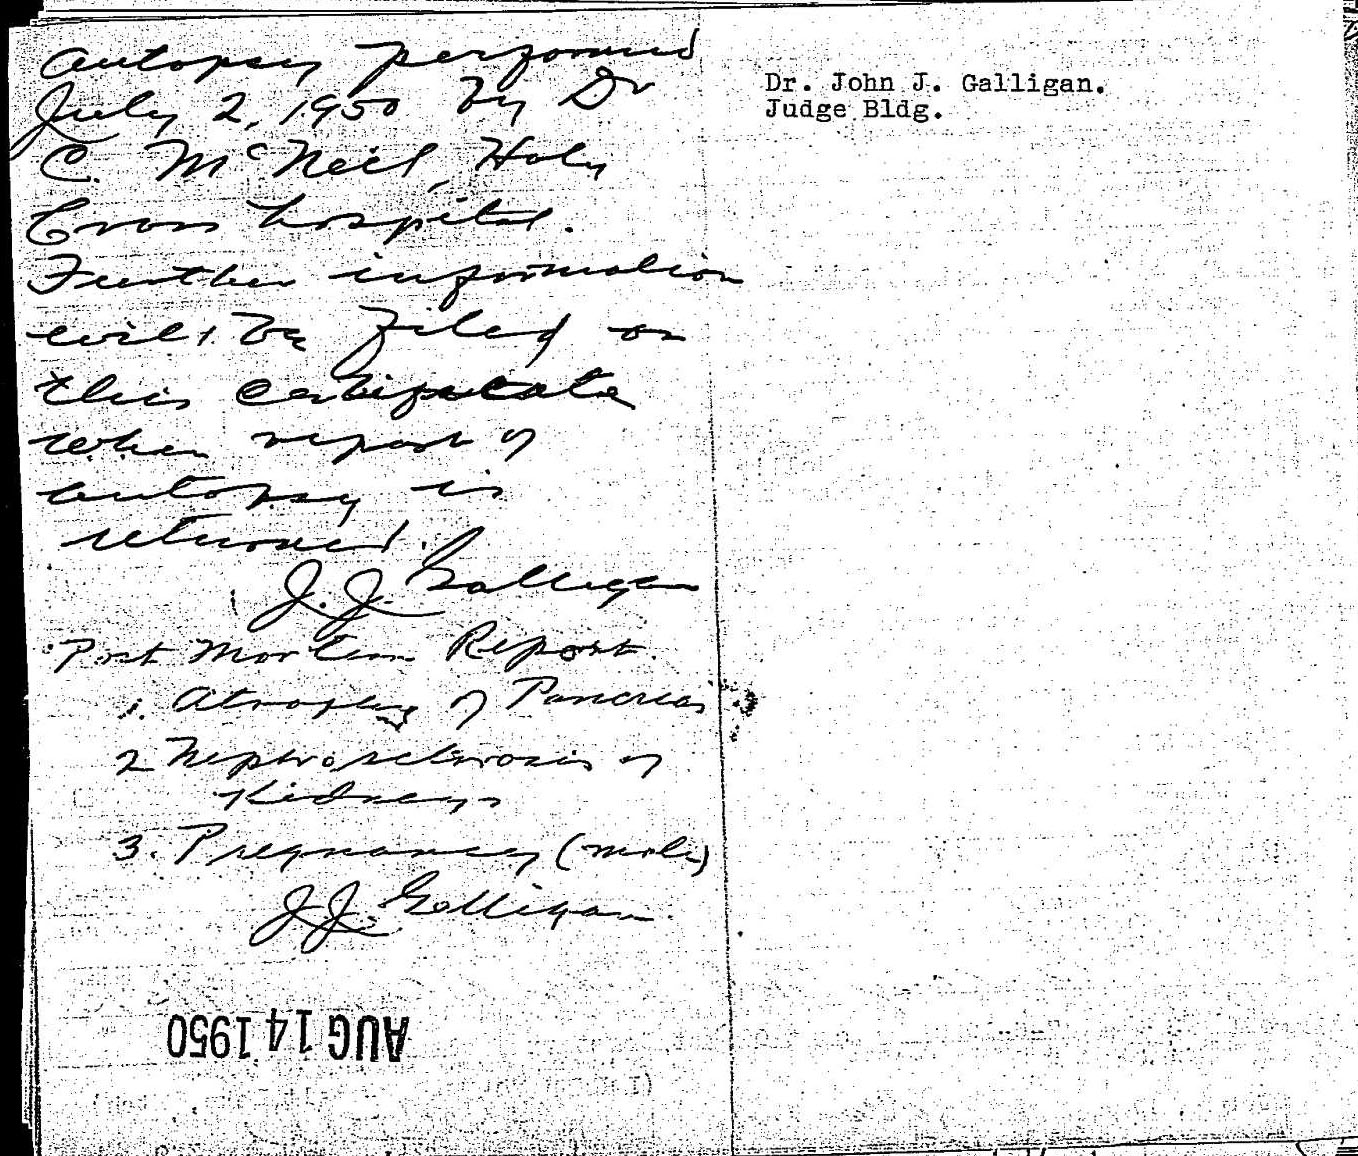 Autopsy performed
July 2, 1950 by Dr
C. McNeil, Holy
Cross hospital.
Further information
will be filed on
this certificate
when report of
autopsy is
returned.
J. J. Galligan
Post Mortem Report.
1. Atrophy of Pancreas
2 Nephrosclerosis of
Kidneys
3. Pregnancy (mole)
J. J. Galligan
AUG 14 1950
Dr. John J. Galligan.
Judge Bldg.